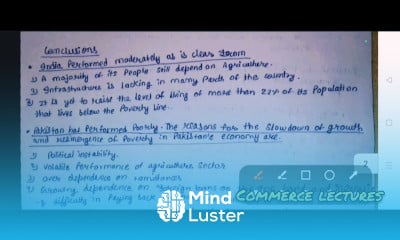 Conclusions
• India Performed moderately as is clear from
1) A majority of its People still depend on Agriculture.
2) Infrastructure is Lacking in many Parts of the country.
3) It is yet to raise the level of living of more than 22% of its Population
that lives below the Poverty Line.
• Pakistan has Performed Poorly. The Reasons for the Slowdown of growth
and Reemergence of Poverty in Pakistan's economy are.
1) Political instability.
2) Volatile Performance of agriculture Sector
3) over dependence on remittances
4) Growing dependence on foreign loans on the one hand and
difficulty in Paying back
2
COMMERCE LECTURES
Mind
Luster